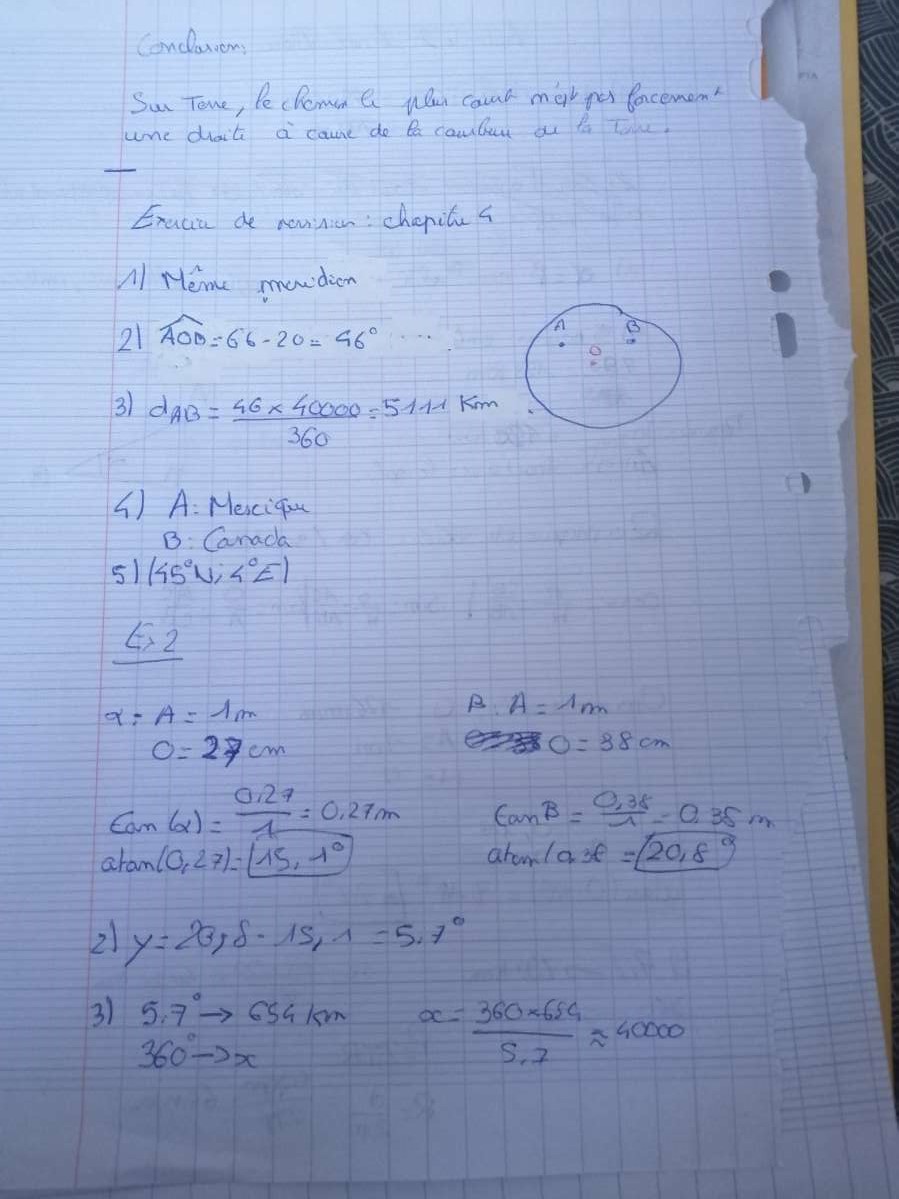 Conclusion:
Sur Terre, le chemin le plus court n'est pas forcement
une droite à cause de la courbure de la Terre.
Exercice de revision: chapitre 4
1) Même meridien
2) AOB = 66 - 20 = 46° ....
A B
O
3) dAB = 46 x 40000 / 360 = 5111 Km
4) A: Mexique
B: Canada
5) (45°N; 4°E)
Ex 2
α: A = 1m
O = 27 cm
B: A = 1m
O = 38 cm
tan(α) = 0,27 / 1 = 0,27 m
atan(0,27) = 15,1°
tan B = 0,38 / 1 = 0,38 m
atan(0,38 = 20,8°
2) y = 20,8 - 15,1 = 5,7°
3) 5,7° → 654 km
360° → x
x = 360 x 654 / 5,7 ≈ 40000